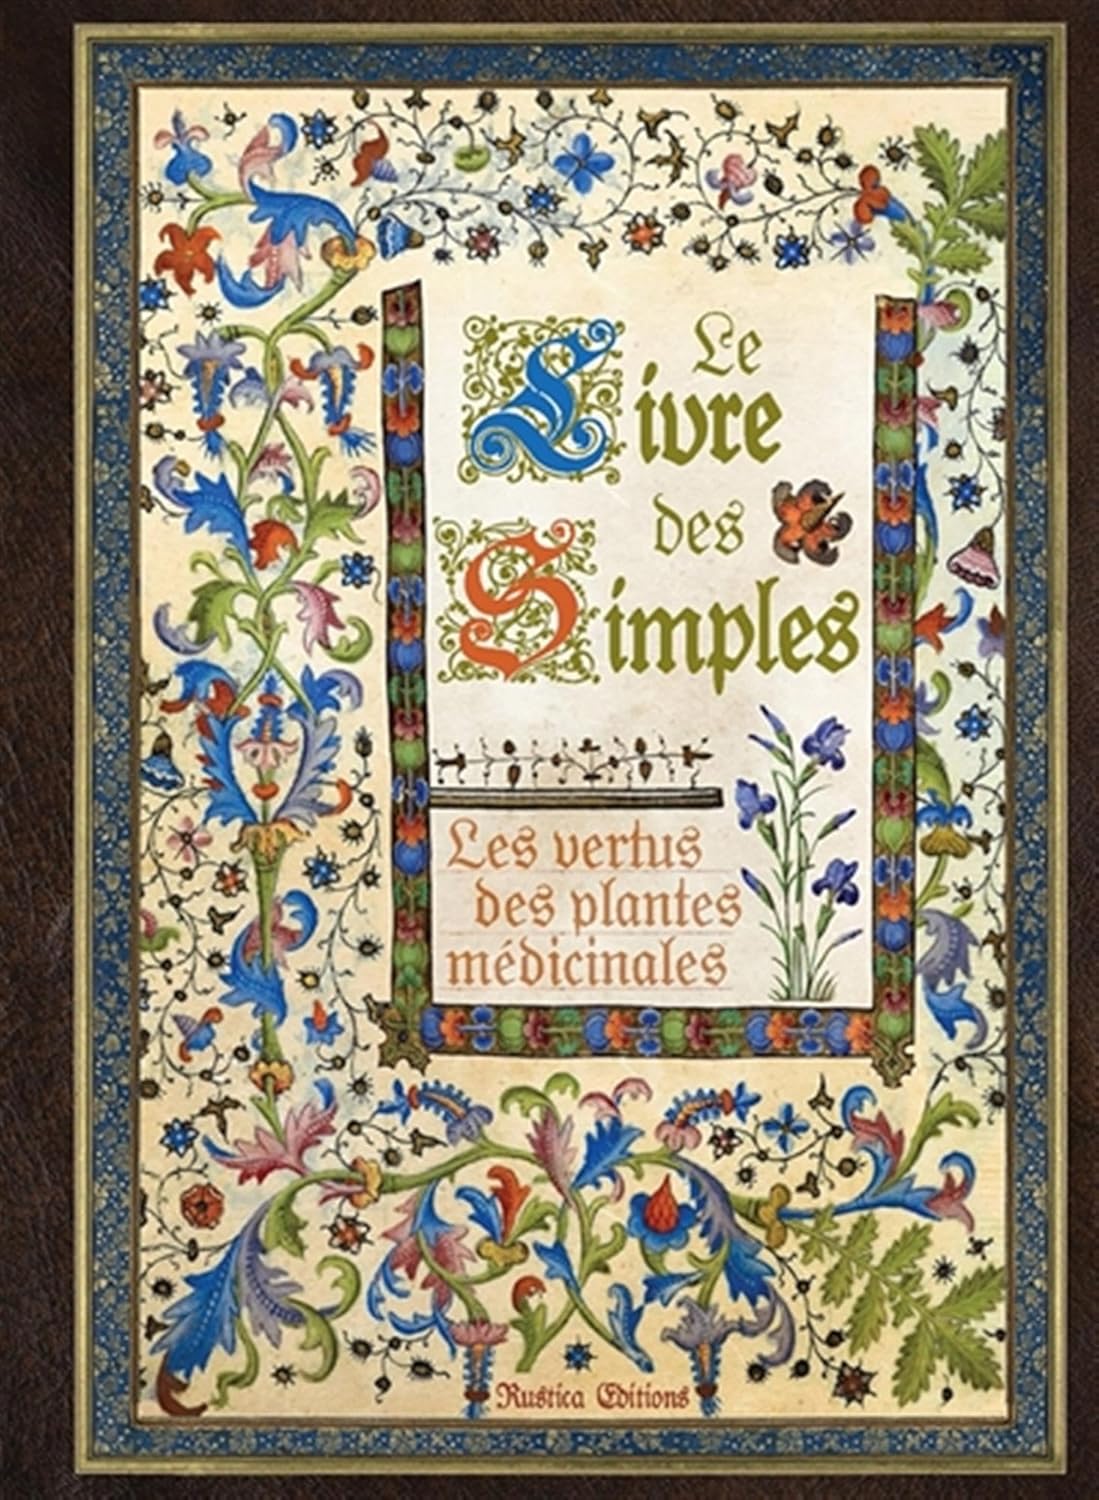 Le
Livre
des
Simples
Les vertus
des plantes
médicinales
Rustica Editions